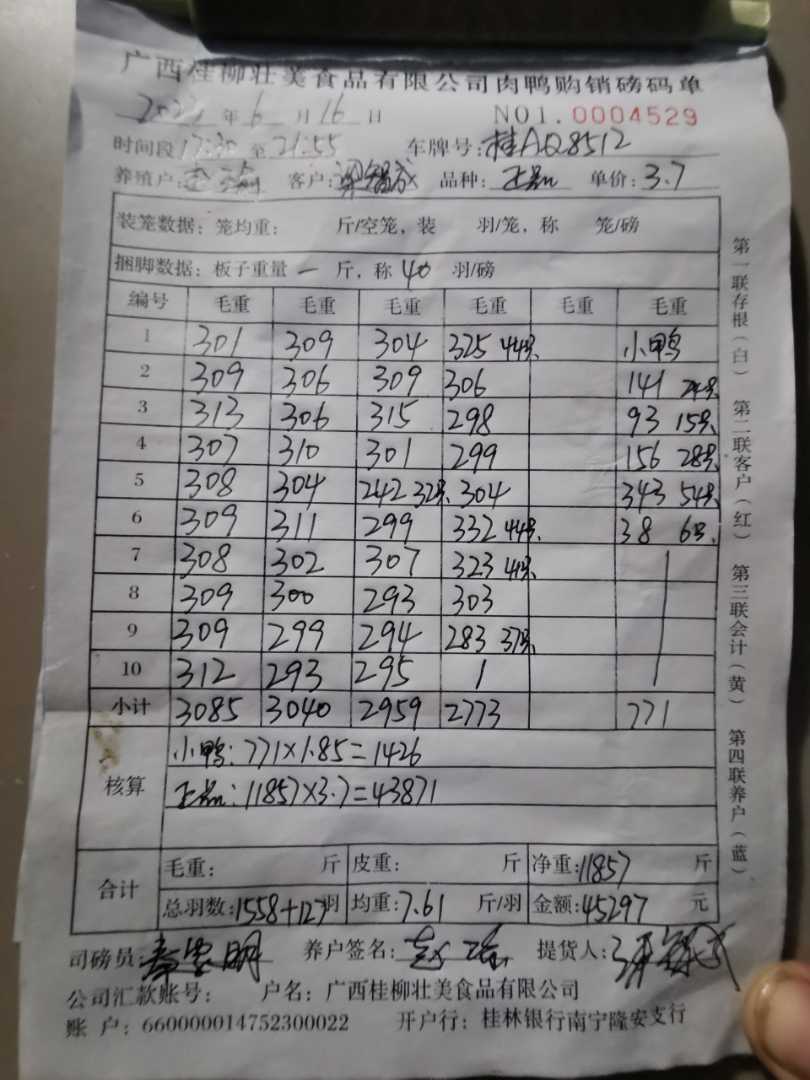 广西桂柳壮美食品有限公司肉鸭购销磅码单
年 6 月 16 日 NO1.0004529
时间段 17:30 至 21:55 车牌号:桂AQ8512
养殖户: 客户: 品种:正品 单价:3.7
装笼数据:笼均重: 斤/空笼,装 羽/笼,称 笼/磅
捆脚数据:板子重量 一 斤,称 40 羽/磅
编号 毛重 毛重 毛重 毛重 毛重 毛重
1 301 309 304 325 44号 小鸭
2 309 306 309 306 141
3 313 306 315 298 93 15号
4 307 310 301 299 156 28号
5 308 304 242 32号 304 343 54号
6 309 311 299 332 44号 38 6号
7 308 302 307 323 41号
8 309 300 293 303
9 309 299 294 283 37号
10 312 293 295
小计 3085 3040 2959 2773 771
小鸭:771×1.85=1426
核算
正品:11857×3.7=43871
合计
毛重: 斤 皮重: 斤 净重:11857 斤
总羽数:1558+127羽 均重:7.61 斤/羽 金额:45297 元
司磅员: 养户签名: 提货人:
公司汇款账号: 户名:广西桂柳壮美食品有限公司
账 户:660000014752300022 开户行:桂林银行南宁隆安支行
第一联存根(白) 第二联客户(红) 第三联会计(黄) 第四联养户(蓝)